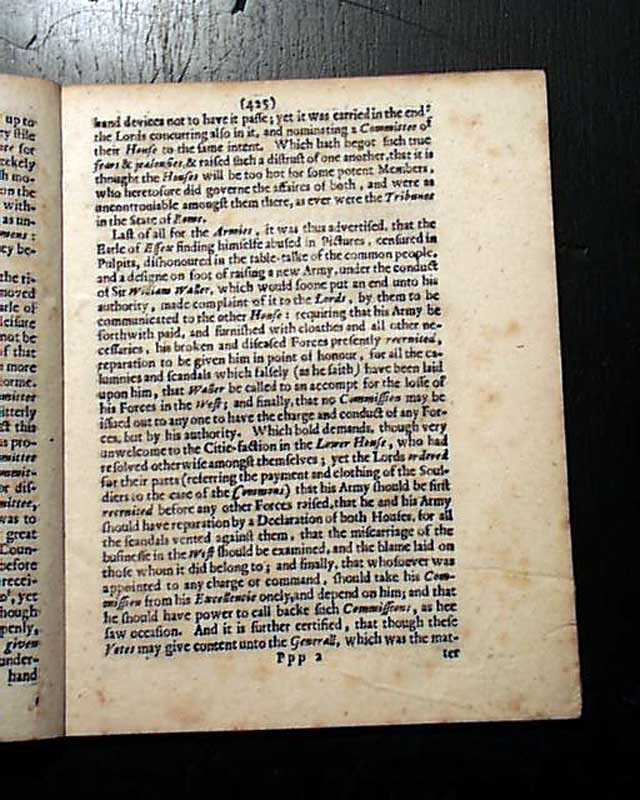 up to
for
on the
with-
as un-
ey be-
the ri-
moved
arle of
not be
of that
more
forme.
mittee
this
as pro-
or dis-
was to
great
Coun-
before
recei-
yet
though
penly,
given
under-
hand
(425)
hand devices not to have it passe; yet it was carried in the end:
the Lords concurring also in it, and nominating a Committee of
their House to the same intent. Which hath begot such true
fears & jealousies, & raised such a distrust of one another, that it is
thought the Houses will be too hot for some potent Members,
who heretofore did governe the affaires of both, and were as
uncontroulable amongst them there, as ever were the Tribunes
in the State of Rome.
Last of all for the Armies, it was thus advertised, that the
Earle of Essex finding himselfe abused in Pictures, censured in
Pulpits, dishonoured in the table-talke of the common people,
and a designe on foot of raising a new Army, under the conduct
of Sir William Waller, which would soone put an end unto his
authority, made complaint of it to the Lords, by them to be
communicated to the other House: requiring that his Army be
forthwith paid, and furnished with cloathes and all other ne-
cessaries, his broken and diseased Forces presently recruited,
reparation to be given him in point of honour, for all the ca-
lumnies and scandals which falsely (as he saith) have been laid
upon him, that Waller be called to an accompt for the losse of
his Forces in the West; and finally, that no Commission may be
issued out to any one to have the charge and conduct of any For-
ces, but by his authority. Which bold demands, though very
unwelcome to the Citie-faction in the Lower House, who had
resolved otherwise amongst themselves; yet the Lords ordered
for their parts (referring the payment and clothing of the Soul-
diers to the care of the Commons) that his Army should be first
recruited before any other Forces raised, that he and his Army
should have reparation by a Declaration of both Houses, for all
the scandals vented against them, that the miscarriage of the
businesse in the West should be examined, and the blame laid on
those whom it did belong to; and finally, that whosoever was
appointed to any charge or command, should take his Com-
mission from his Excellencie onely, and depend on him; and that
he should have power to call backe such Commissions, as hee
saw occasion. And it is further certified, that though these
Votes may give content unto the Generall, which was the mat-
Ppp 2 ter